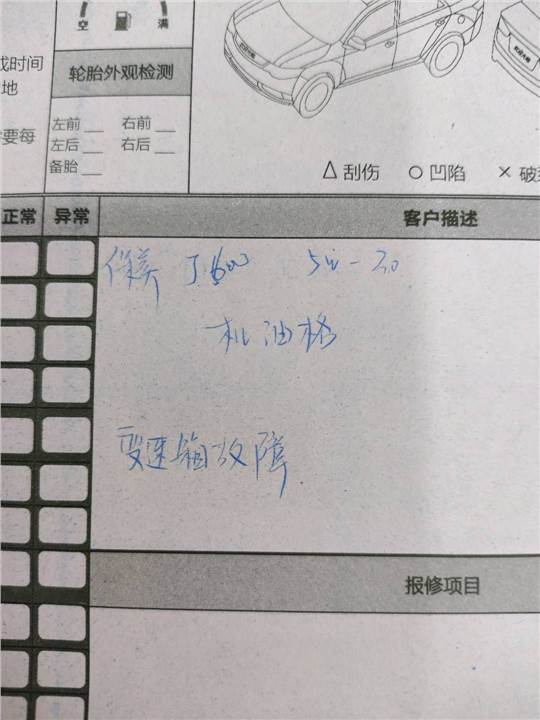 空 满
成时间
地
轮胎外观检测
要每
左前 __ 右前 __
左后 __ 右后 __
备胎 __
△ 刮伤 ○ 凹陷 × 破
正常 异常 客户描述
保养 J600 5w-30
机油格
变速箱故障
报修项目